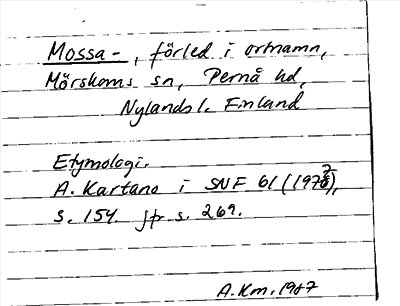 Mossa-, förled i ortnamn,
Mörskoms sn, Pernå hd,
Nylands l. Finland
Etymologi.
A. Kartano i SNF 61 (1973),
s. 154. jfr s. 269.
A.Km. 1987